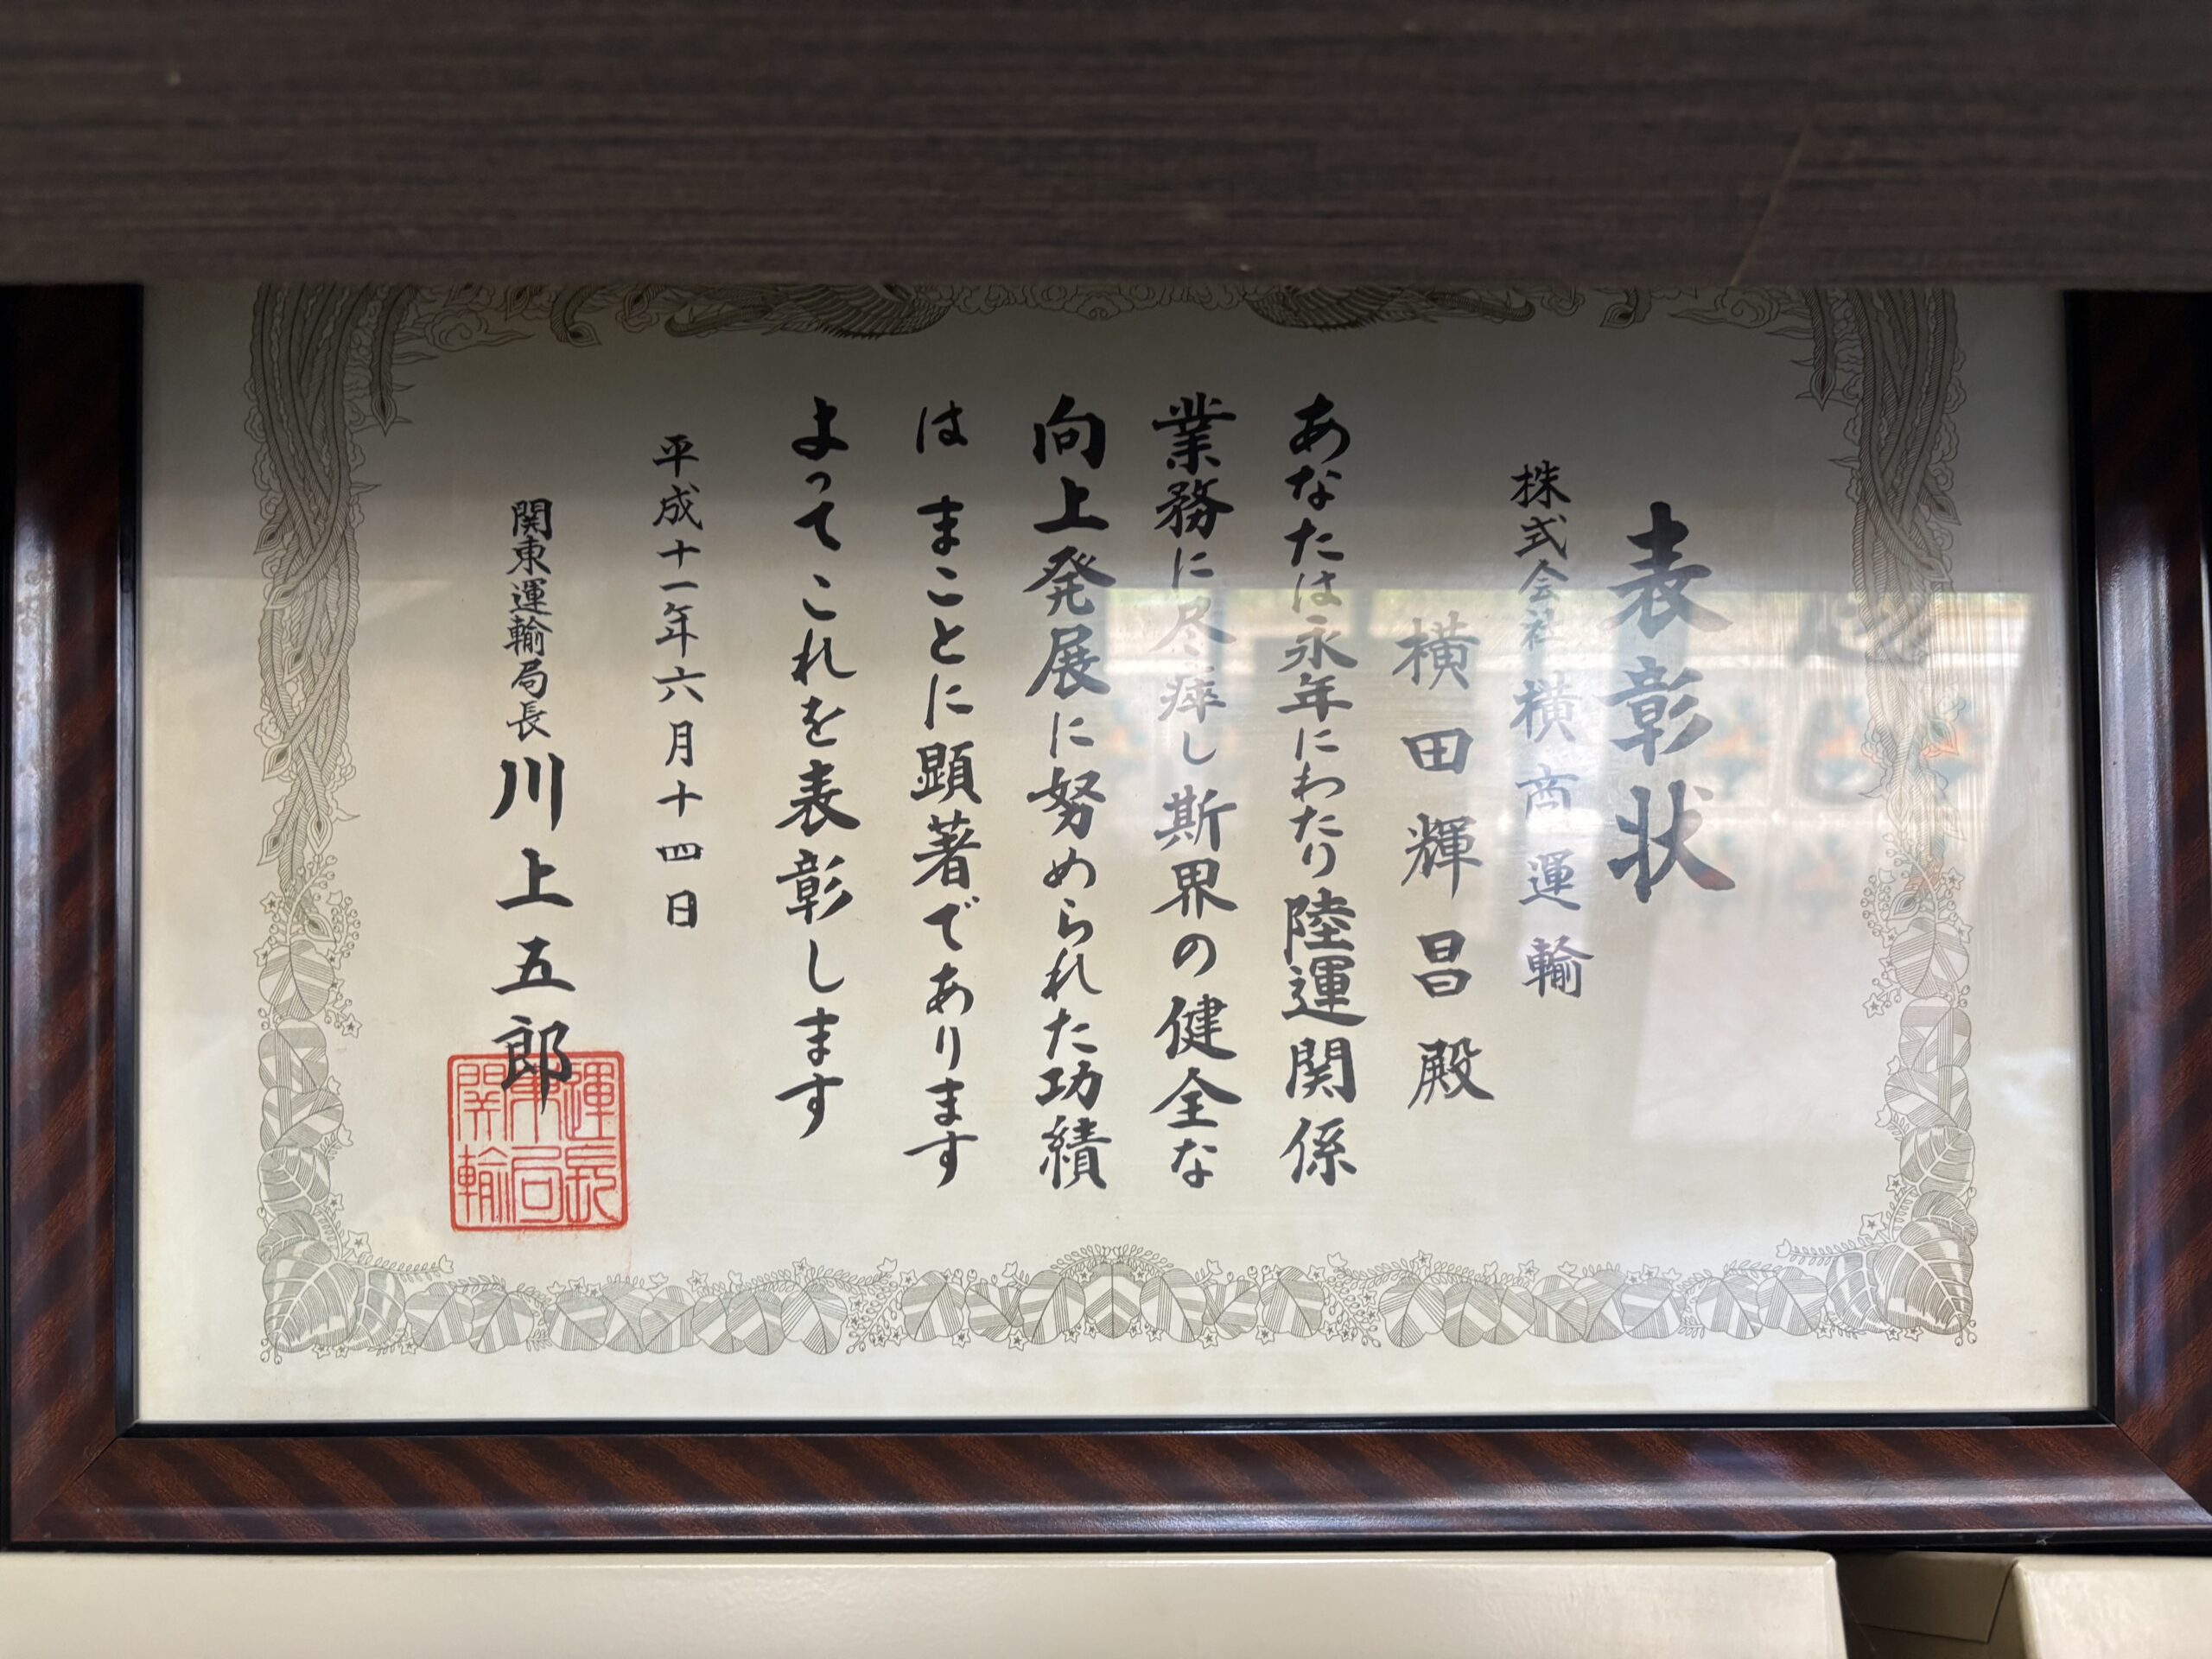 表彰状
株式会社横商運輸
横田輝昌殿
あなたは永年にわたり陸運関係
業務に尽瘁し斯界の健全な
向上発展に努められた功績
は まことに顕著であります
よってこれを表彰します
平成十一年六月十四日
関東運輸局長 川上五郎
運長
東局
関輸